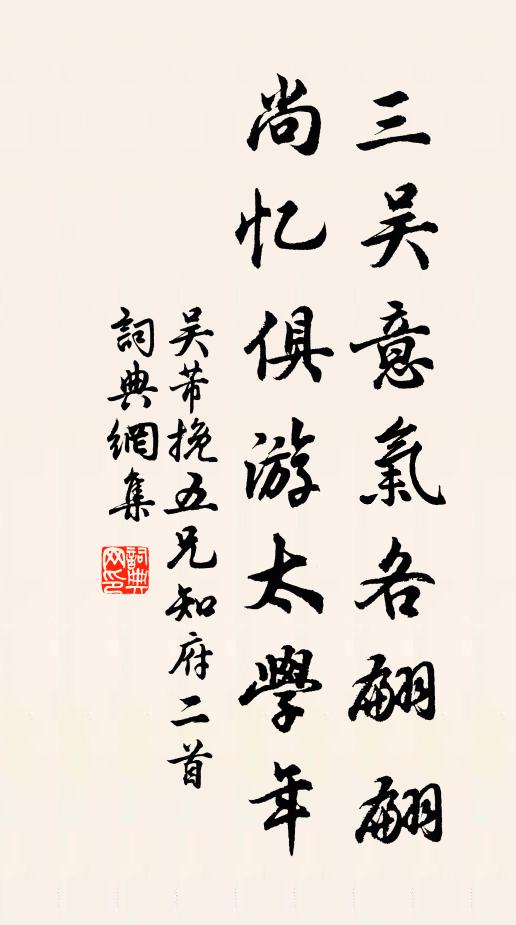 三吴意氣各翩翩
尚忆俱游太學年
吴芾挽五兄知府二首
詞典網集
詞典网印